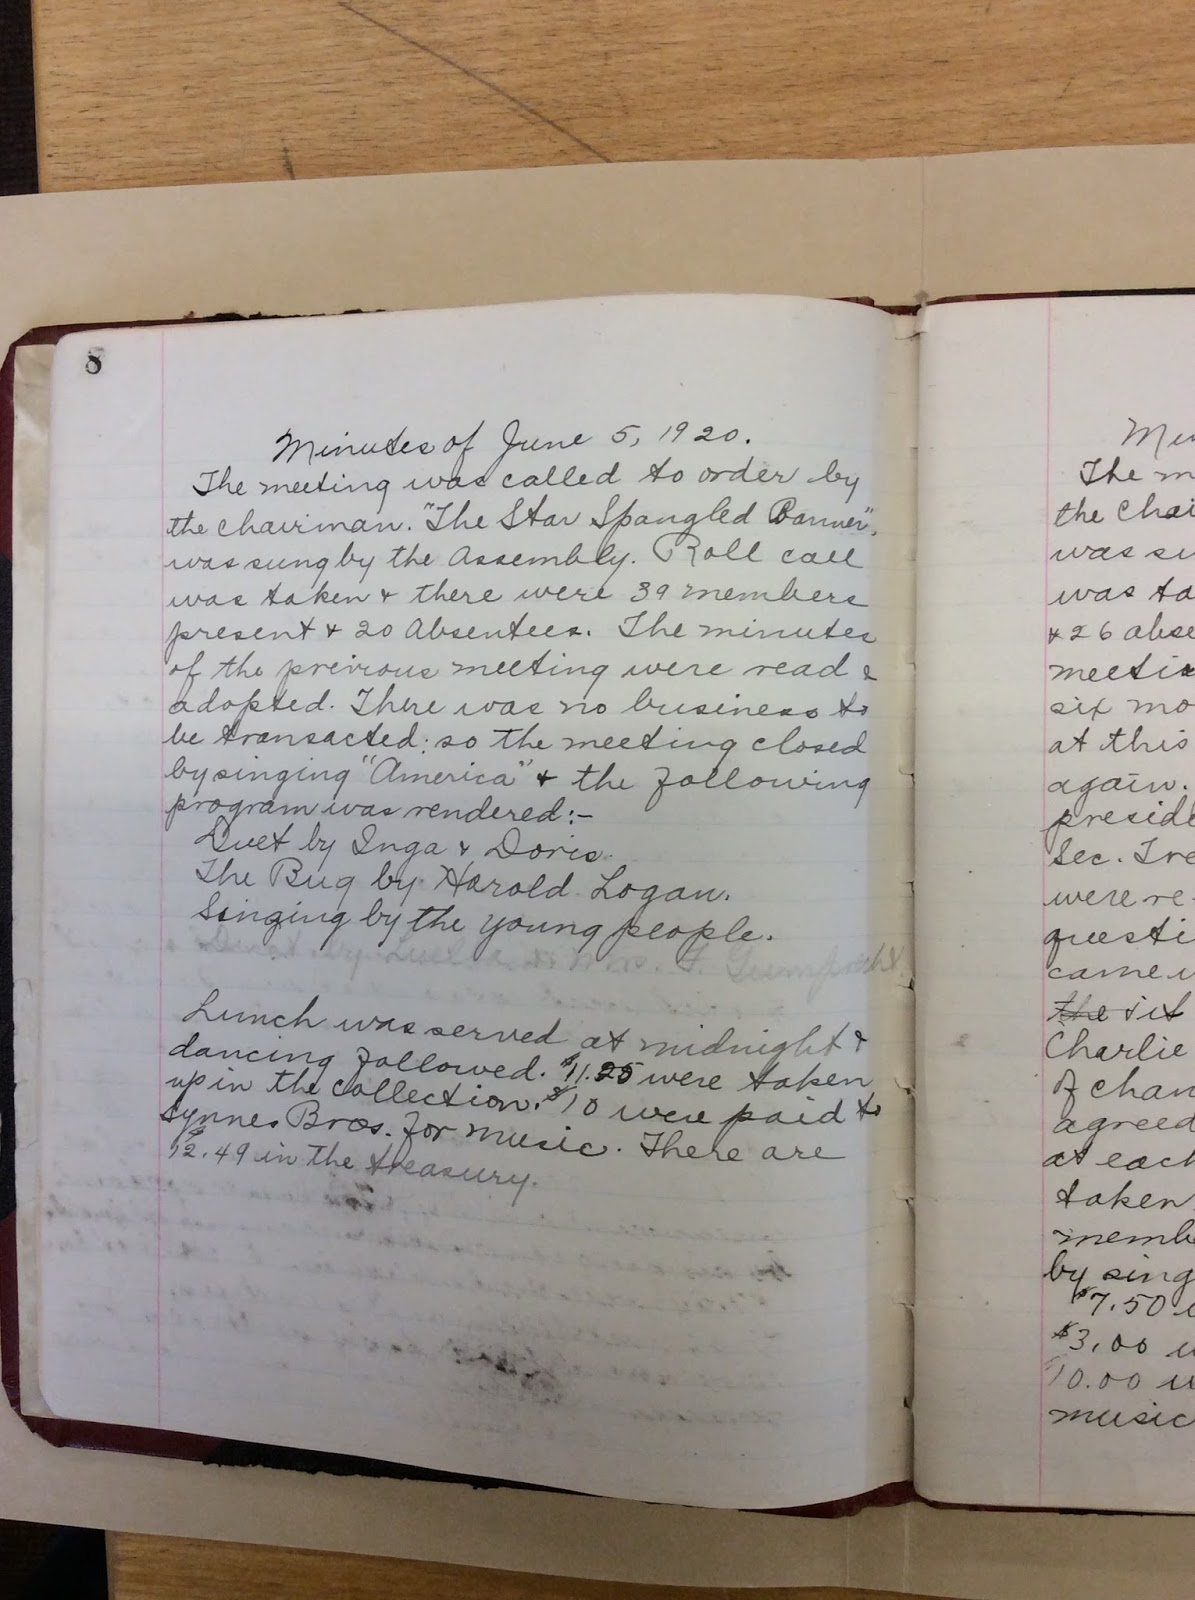 8
Minutes of June 5, 1920.
The meeting was called to order by
the chairman. "The Star Spangled Banner",
was sung by the Assembly. Roll call
was taken & there were 39 members
present & 20 Absentees. The minutes
of the previous meeting were read &
adopted. There was no business to
be transacted; so the meeting closed
by singing "America" & the following
program was rendered:-
Duet by Inga & Doris.
The Bug by Harold Logan.
Singing by the young people.
Duet by Luella & Mrs. F.
Lunch was served at midnight &
dancing followed. $11.25 were taken
up in the collection. $10 were paid to
Synnes Bros. for music. There are
$2.49 in the treasury.
The m
the Chai
was su
was ta
& 26 abse
meetin
six mo
at this
again.
presid
Sec. Ire
were re
questi
came
the sit
Charlie
of chan
agreed
at each
taken
memb
by sing
$7.50
$3.00
10.00
music